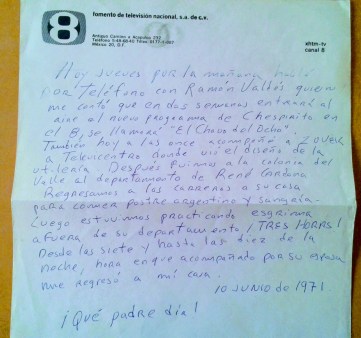 8
fomento de televisión nacional, s.a. de c.v.
México 20, D.F.
xhtm-tv
canal 8
Hoy jueves por la mañana hablé
por Teléfono con Ramón Valdés quien
me contó que en dos semanas entrará al
aire el nuevo programa de Chespirito en
el 8, se llamará "El Chavo del Ocho".
También hoy a las once acompañé a
a Telecentro donde vió el diseño de la
utilería. Después fuimos a la colonia del
Valle al departamento de René Cardona
Regresamos a las carreras a su casa
para comer postre argentino y sangría.
Luego estuvimos practicando esgrima
afuera de su departamento ¡TRES HORAS!
Desde las siete y hasta las diez de la
noche, hora en que acompañado por su esposa
me regresó a mi casa.
10 JUNIO de 1971
¡QUÉ padre día!